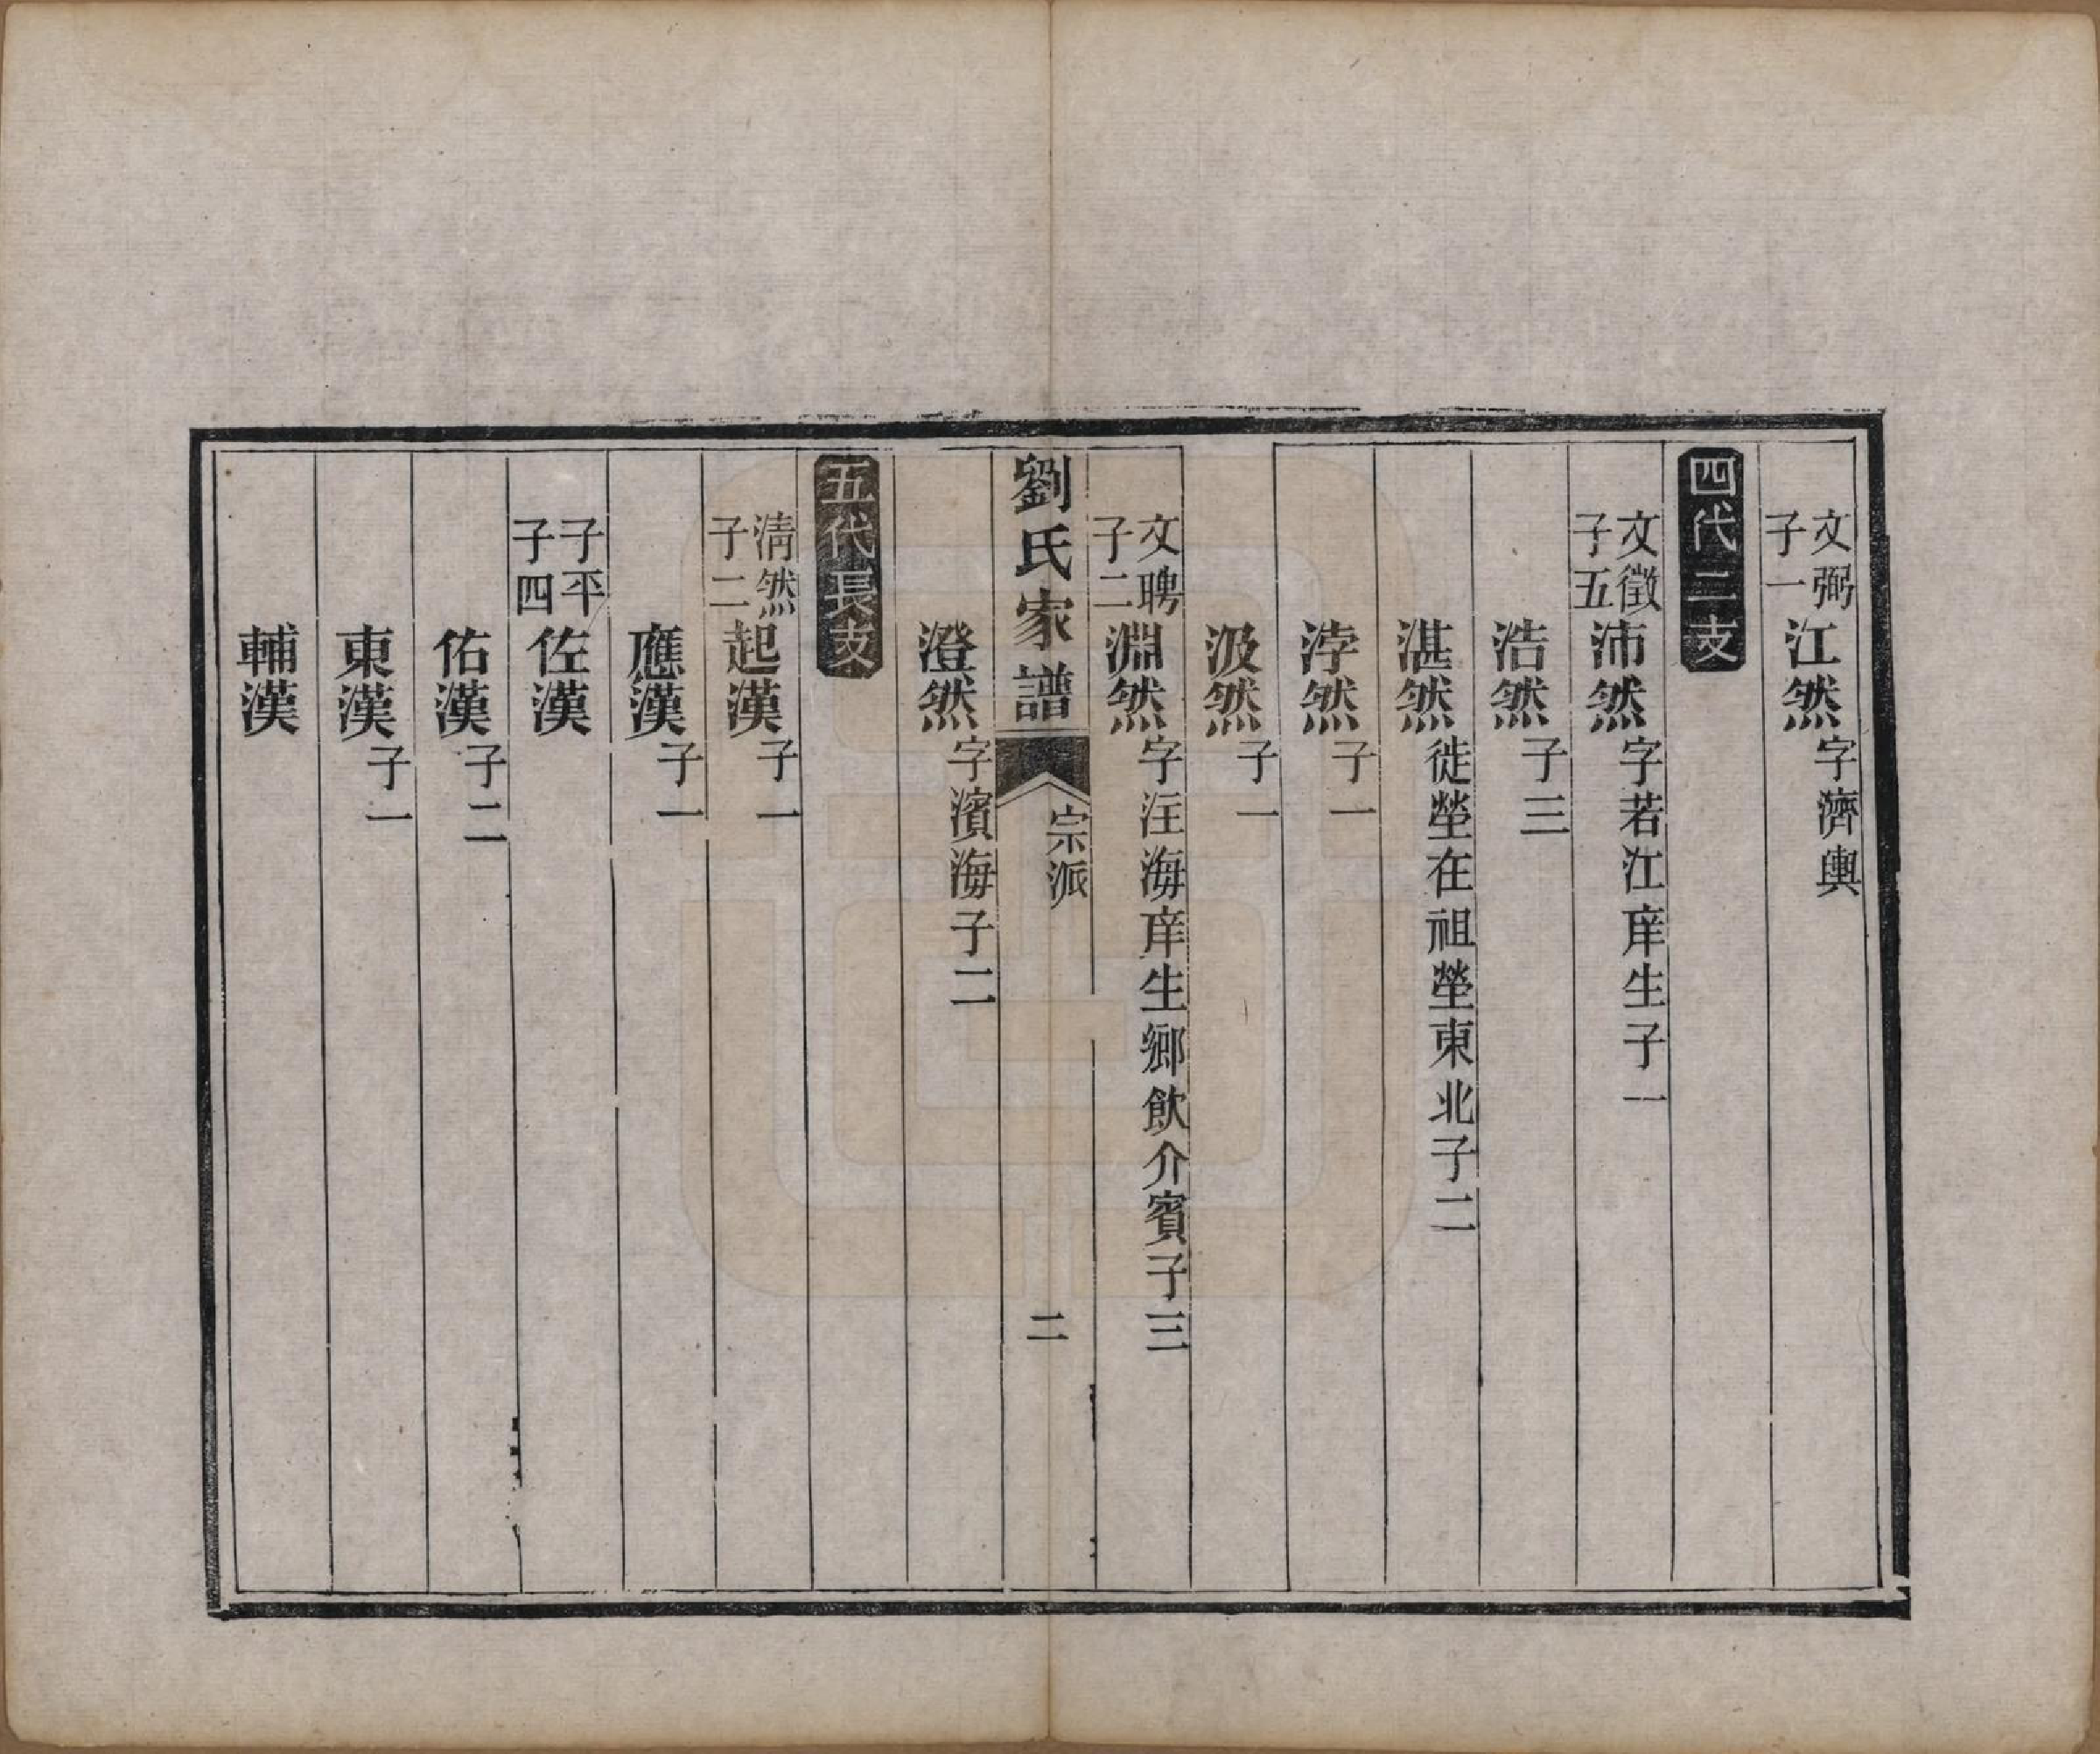 文弼子一江然字濟輿
四代二支
文徵子五沛然字若江庠生子一
浩然子三
湛然徙塋在祖塋東北子二
浡然子一
汲然子一
文聘子二淵然字汪海庠生鄉飲介賓子三
劉氏家譜 宗派 二
澄然字濱海子二
五代長支
清然子二起漢子一
應漢子一
子平子四佐漢
佑漢子二
東漢子一
輔漢